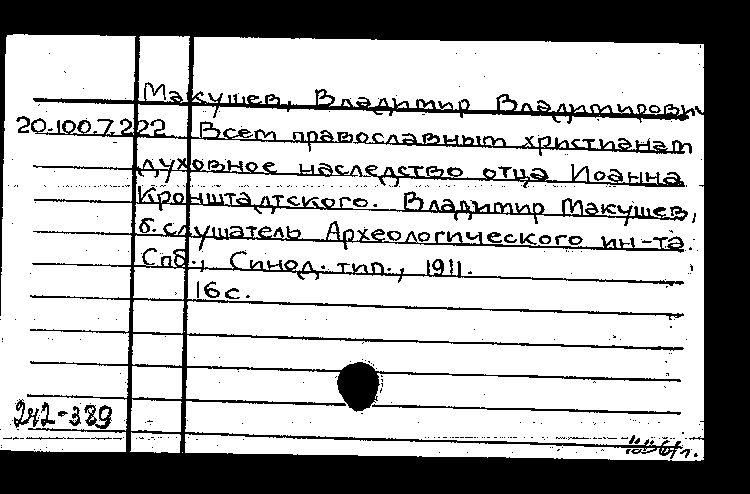 Макушев, Владимир Владимирович
20.100.7.222 Всем православным христианам
духовное наследство отца Иоанна
Кронштадтского. Владимир Макушев,
б. слушатель Археологического ин-та.
Спб., Синод. тип., 1911.
16 с.
242-389